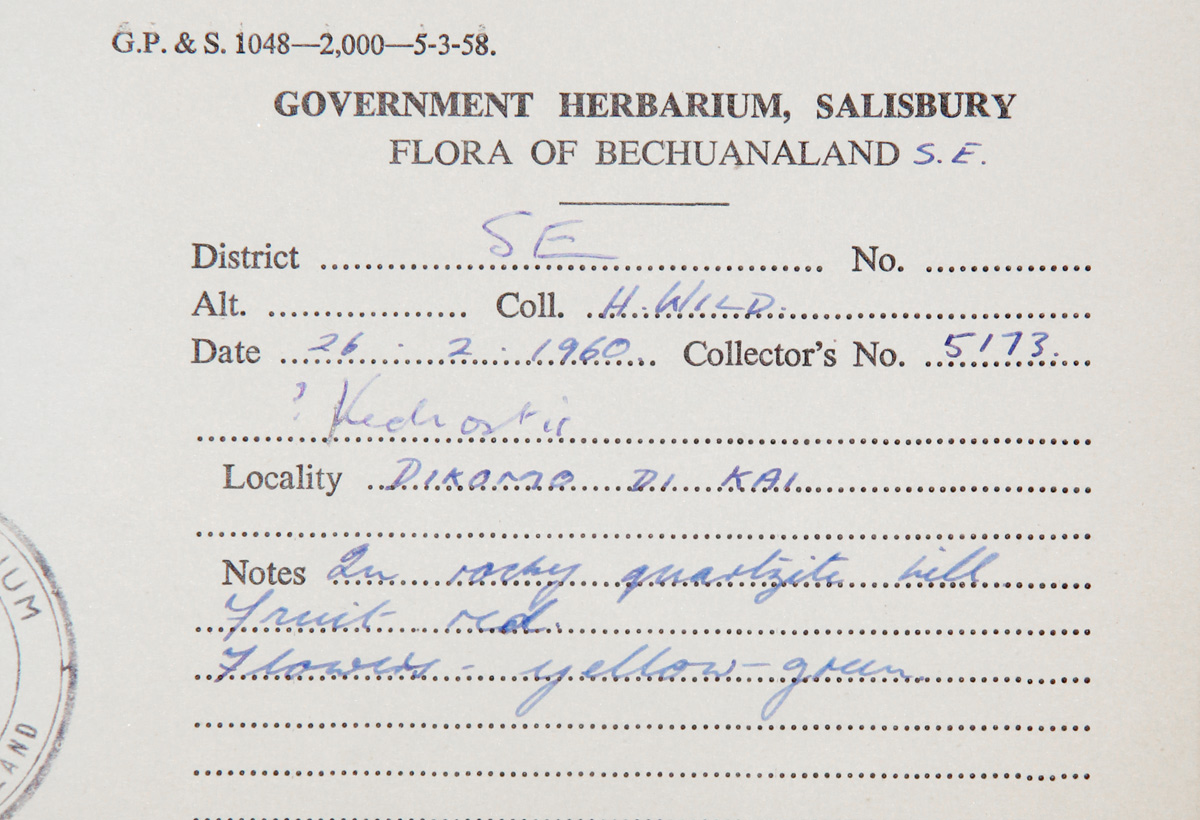 G.P. & S. 1048—2,000—5-3-58.
GOVERNMENT HERBARIUM, SALISBURY
FLORA OF BECHUANALAND S.E.
District SE No.
Alt. Coll. H. WILD.
Date 26 . 2 . 1960. Collector's No. 5173.
? Kedrostis
Locality DIKOMO DI KAI
Notes In rocky quartzite hill
Fruit red.
Flowers - yellow-green.
IUM
AND